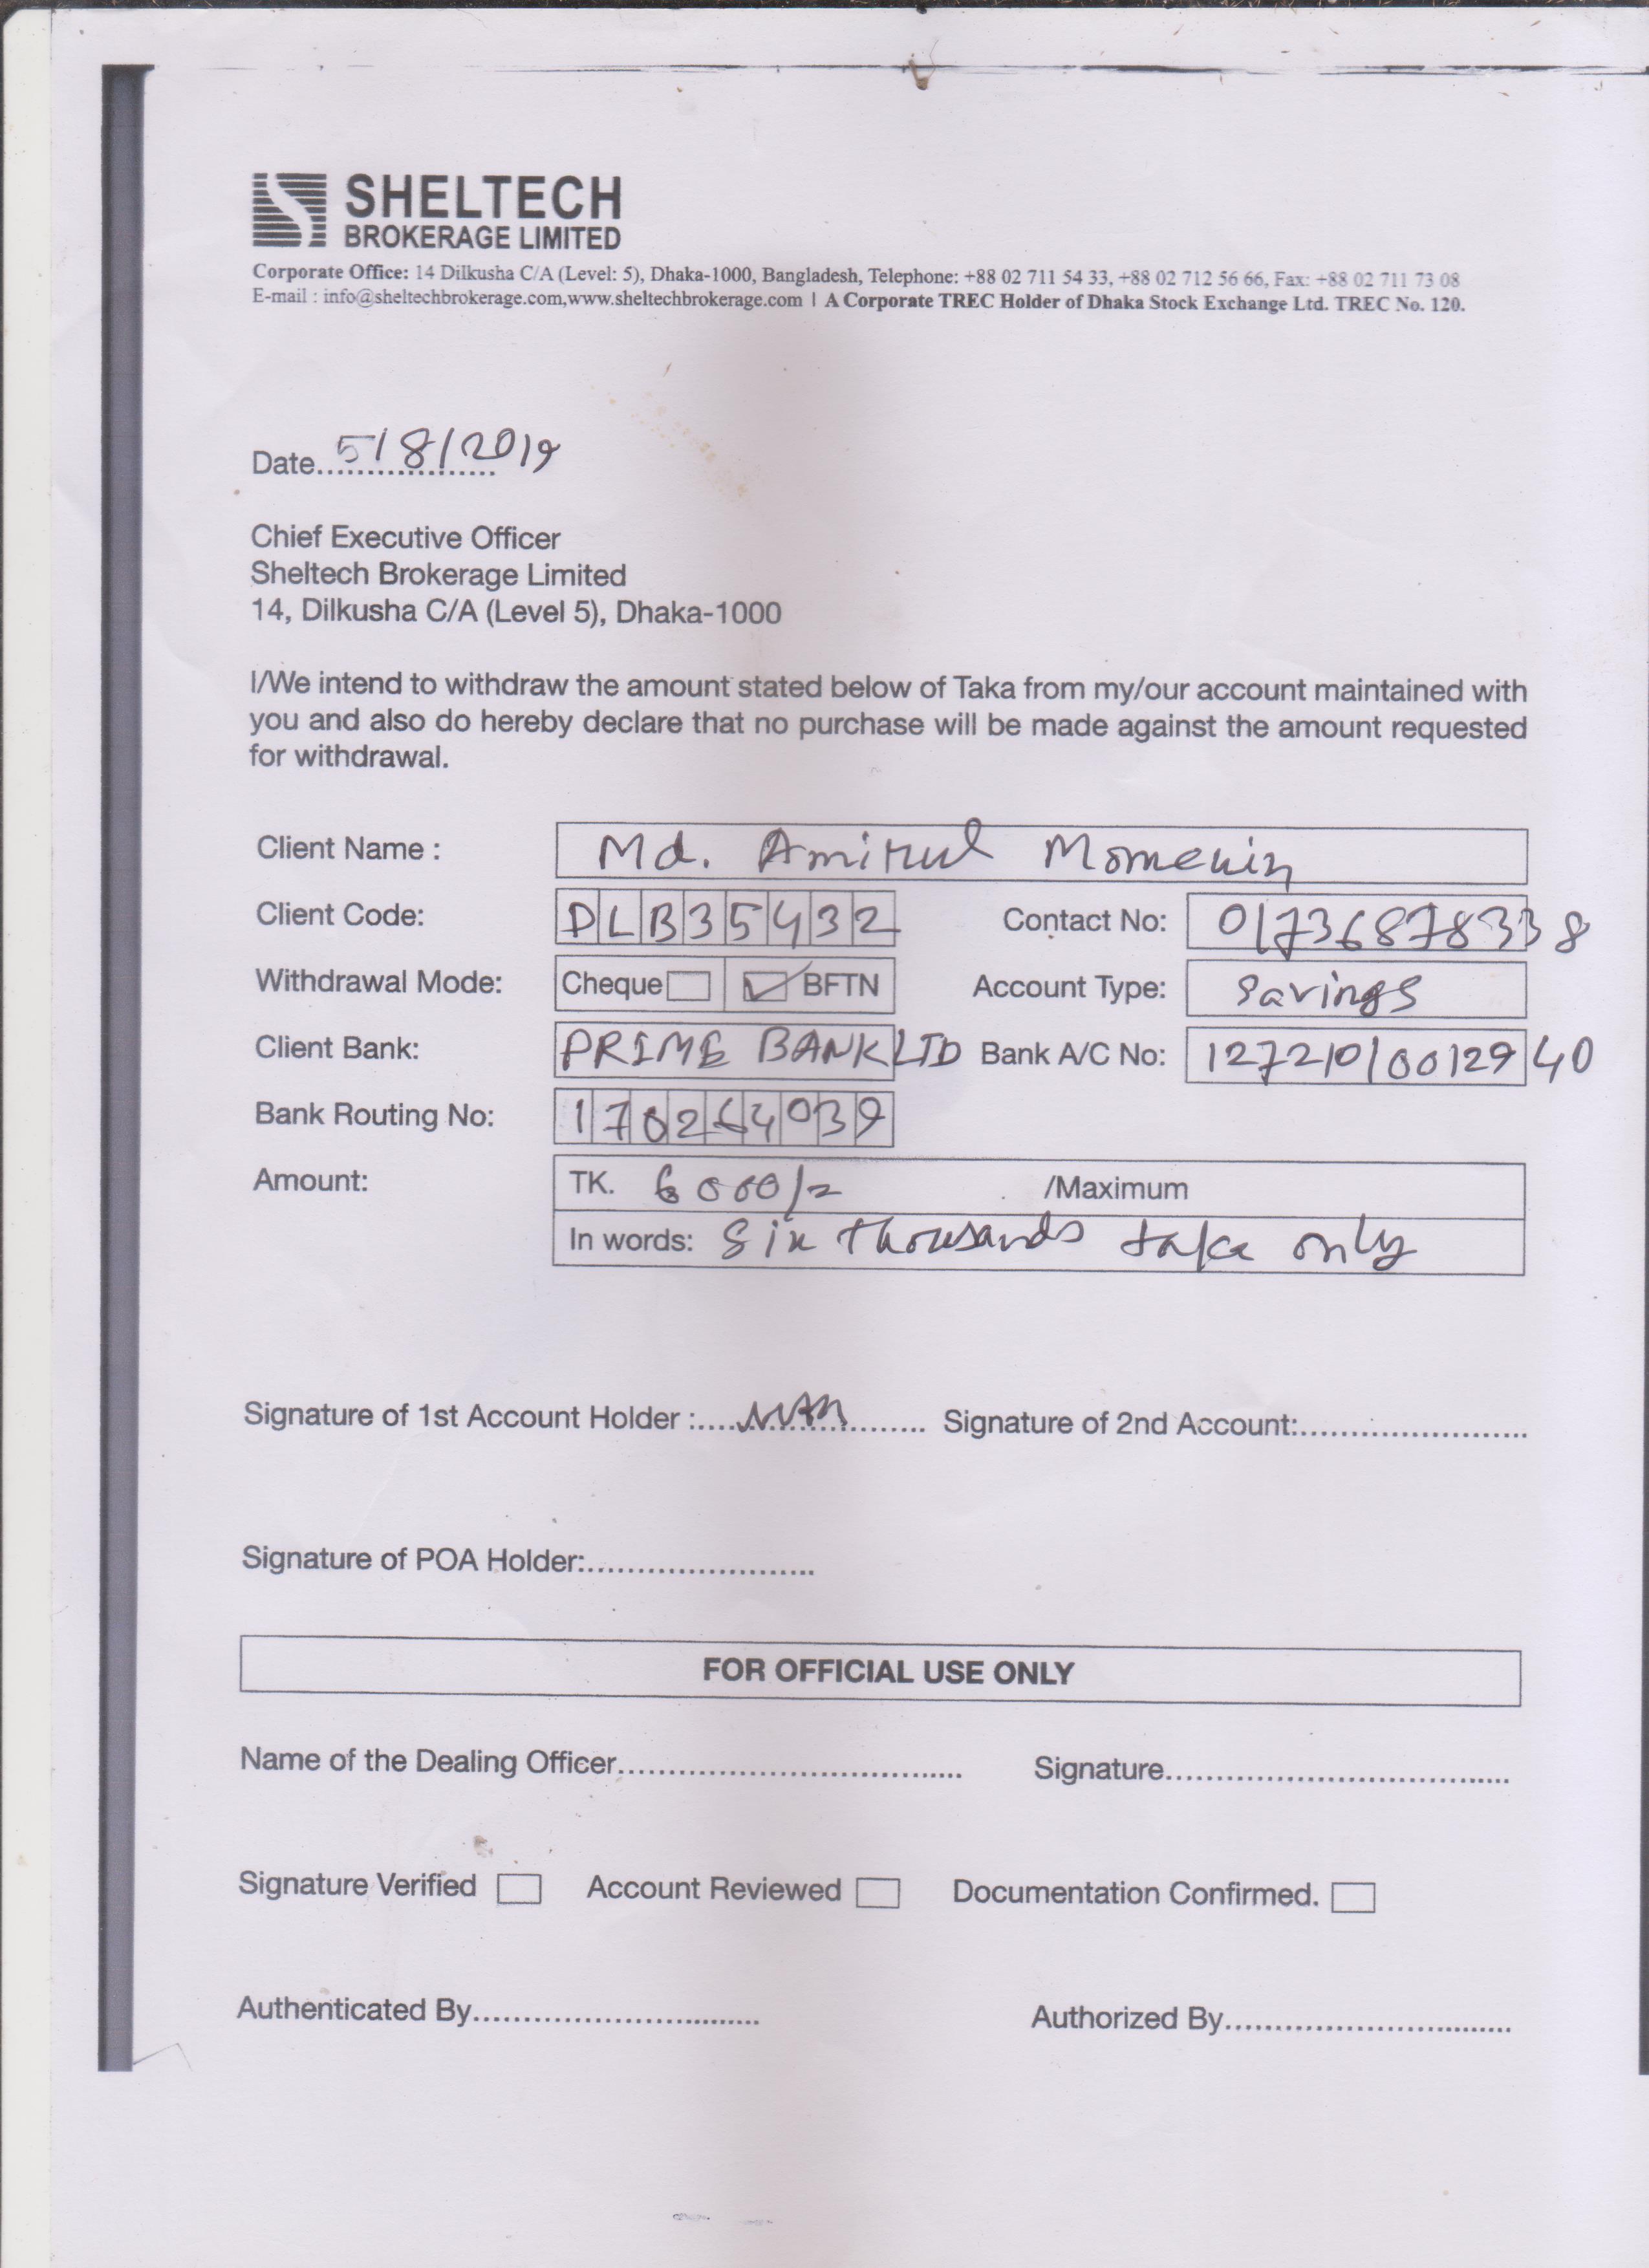 SHELTECH
BROKERAGE LIMITED
Corporate Office: 14 Dilkusha C/A (Level: 5), Dhaka-1000, Bangladesh, Telephone: +88 02 711 54 33, +88 02 712 56 66, Fax: +88 02 711 73 08
E-mail : info@sheltechbrokerage.com,www.sheltechbrokerage.com | A Corporate TREC Holder of Dhaka Stock Exchange Ltd. TREC No. 120.
Date 5/8/2019
Chief Executive Officer
Sheltech Brokerage Limited
14, Dilkusha C/A (Level 5), Dhaka-1000
I/We intend to withdraw the amount stated below of Taka from my/our account maintained with
you and also do hereby declare that no purchase will be made against the amount requested
for withdrawal.
Client Name : Md. Amirul Momenin
Client Code: DLB35432 Contact No: 01736878338
Withdrawal Mode: Cheque BFTN Account Type: Savings
Client Bank: PRIME BANK LTD Bank A/C No: 12721010012940
Bank Routing No: 170264039
Amount: TK. 6000/= /Maximum
In words: Six thousands taka only
Signature of 1st Account Holder : Signature of 2nd Account:
Signature of POA Holder:
FOR OFFICIAL USE ONLY
Name of the Dealing Officer Signature
Signature Verified Account Reviewed Documentation Confirmed.
Authenticated By Authorized By